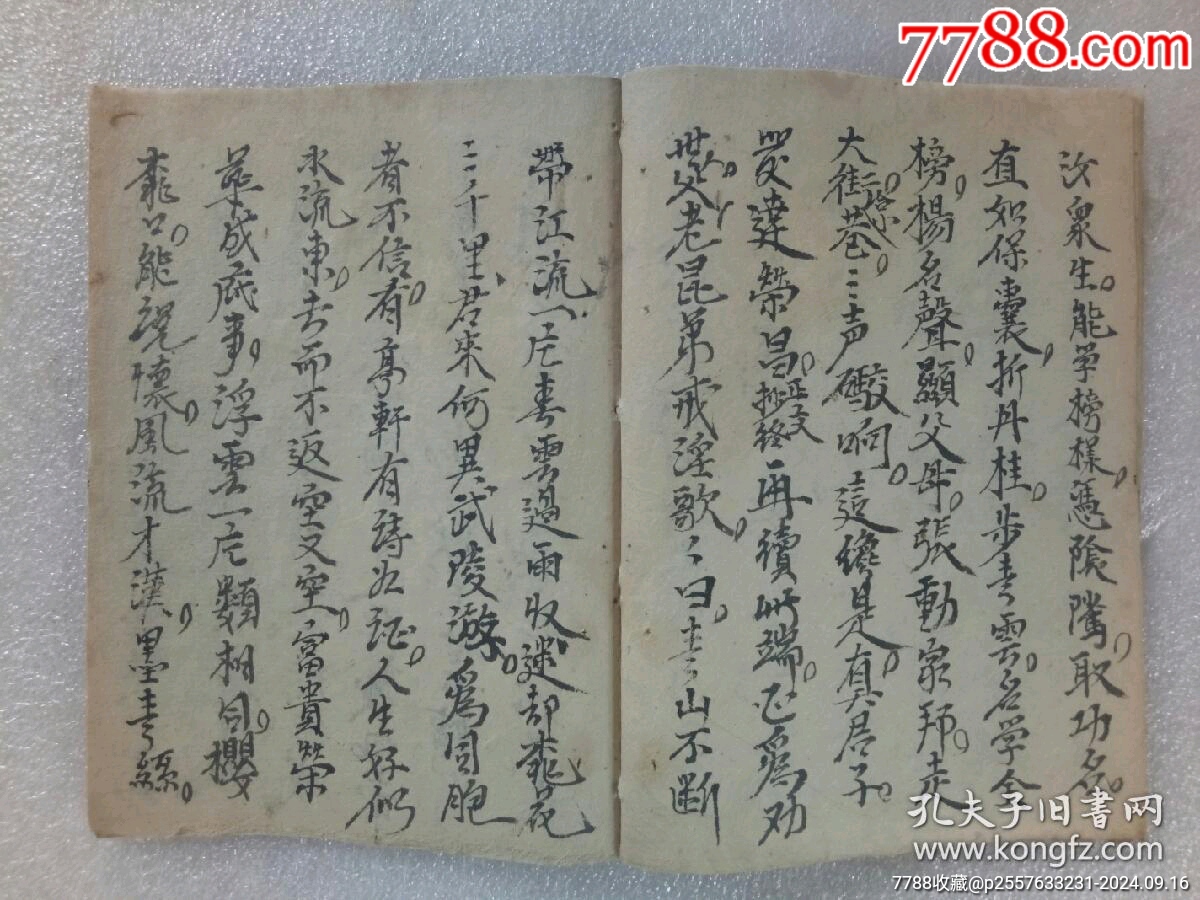 7788.com
汝衆生。能學榜樣。憑陰隲。取功名。
直如保囊。折丹桂。步青雲。名學金
榜。楊名聲。顯父母。張動家邦。走
大街。巷。三声礮响。這纔是有
君子。
發達榮昌。
再續此端。正爲劝
世父老昆弟。戒淫歌。〻曰。青山不断
帶江流。一片春雲過雨收。迷却桃花
三千里。君來何異武陵游。爲同胞
者不信。有亭軒有詩为証。人生好似
水流東。去而不返空又空。富貴榮
華成底事。浮雲一片類相同。櫻
桃口。能説懷。風流才漢。墨青絲。
孔夫子旧书网
www.kongfz.com
7788收藏@p2557633231-2024.09.16